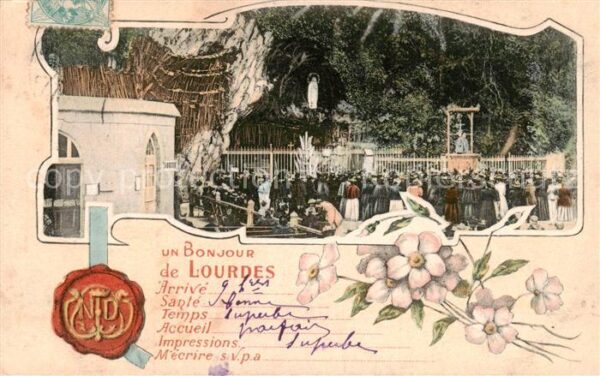 un Bonjour
de LOURDES
Arrivé 9 hres
Santé bonne
Temps superbe
Accueil parfait
Impressions superbe
M'écrire s.v.p.a